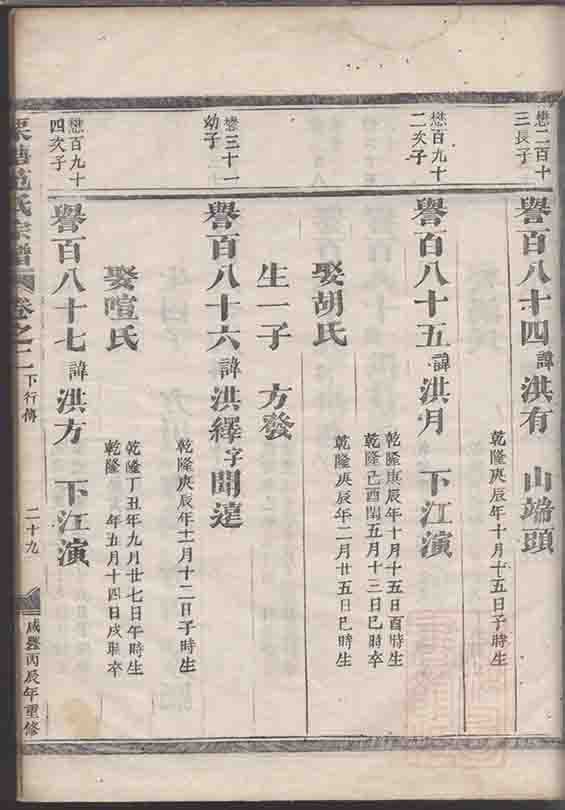 懋二百十
三長子
譽百八十四諱洪有 山端頭
乾隆庚辰年十月十五日子時生
懋百九十
二次子
譽百八十五諱洪月 下江演
乾隆庚辰年十月十五日酉時生
乾隆己酉閏五月十三日巳時卒
娶胡氏
乾隆庚辰年二月廿五日巳時生
生一子 方發
懋三十一
幼子
譽百八十六諱洪繹字開達
乾隆庚辰年十二月十二日子時生
娶喧氏
乾隆丁丑年九月廿七日午時生
乾隆 年五月十四日戌時卒
懋百九十
四次子
譽百八十七諱洪方 下江演
氏宗譜 卷之二 下行傳 二十九 咸豐丙辰年重修